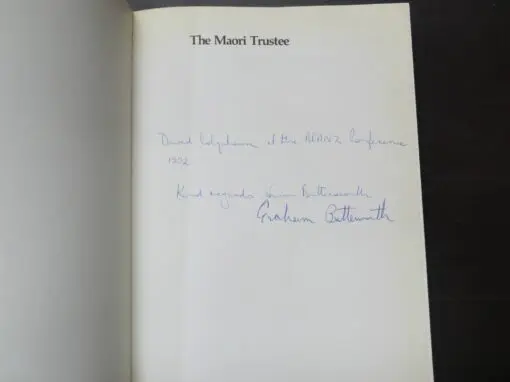 The Maori Trustee
David Colquhoun at the ARANZ Conference
1992
Kind regards Butterworth
Graham Butterworth